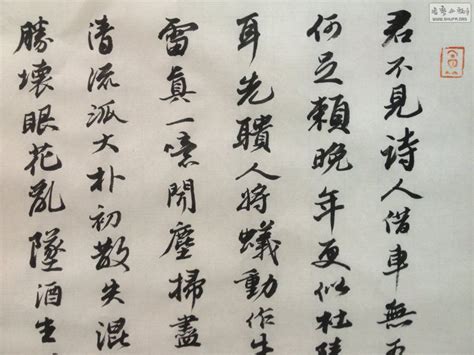 君不見詩人借車無可
何足賴晚年更似杜陵
耳先聵人將蟻動作牛
雷真一噫聞塵掃盡
清流派大朴初散失混
勝壞眼花亂墜酒生